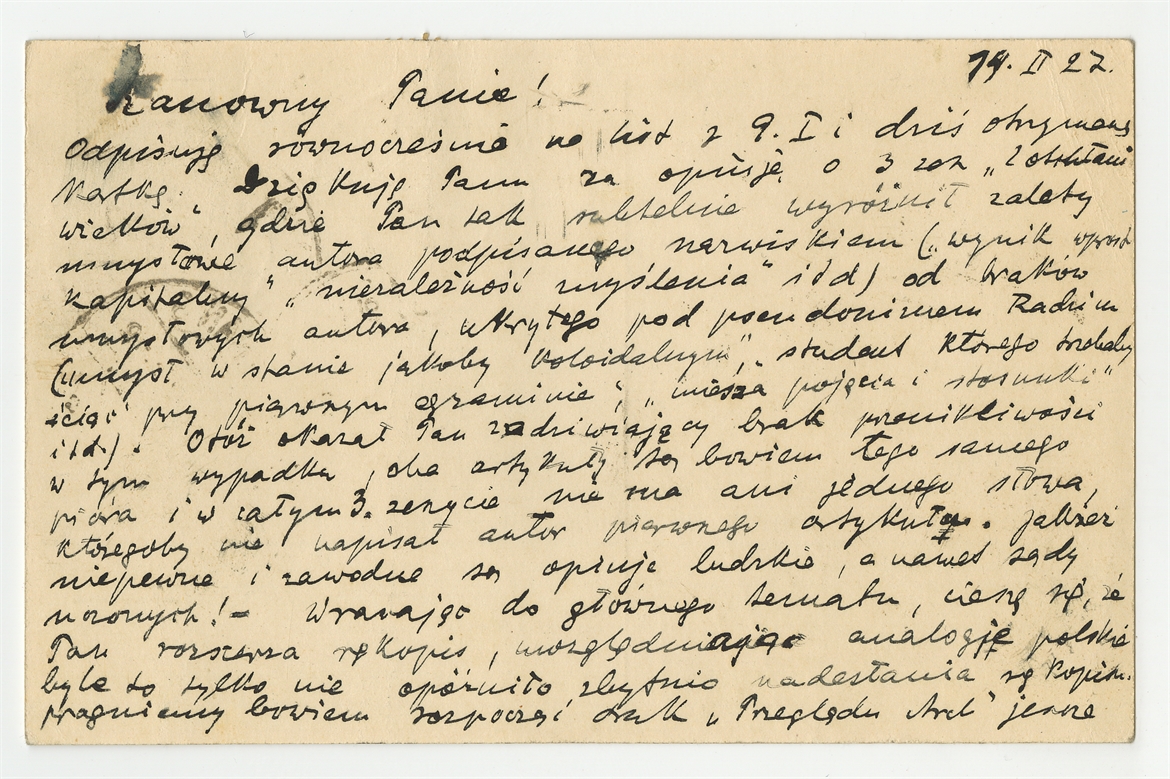 19. II 27.
Szanowny Panie!
Odpisuję równocześnie na list z 9. I i dziś otrzymaną
kartkę. Dziękuję Panu za opinję o 3 zesz. „Z otchłani
wieków", gdzie Pan tak subtelnie wyróżnił zalety
umysłowe autora podpisanego nazwiskiem („wynik wprost
kapitalny" „niezależność myślenia" itd) od braków
umysłowych autora, ukrytego pod pseudonimem Radzim
(„umysł w stanie jakoby koloidalnym", „student którego trzebaby
ściąć przy pierwszym egzaminie", „miesza pojęcia i stosunki"
itd.). Otóż okazał Pan zadziwiający brak przenikliwości
w tym wypadku, oba artykuły są bowiem tego samego
pióra i w całym 3. zeszycie nie ma ani jednego słowa,
któregoby nie napisał autor pierwszego artykułu. Jakżeż
niepewne i zawodne są opinje ludzkie, a nawet sądy
uczonych! – Wracając do głównego tematu, cieszę się, że
Pan rozszerza rękopis, uwzględniając analogje polskie
byle to tylko nie opóźniło zbytnio nadesłania rękopisu.
Pragniemy bowiem rozpocząć druk „Przeglądu Arch" jeszcze